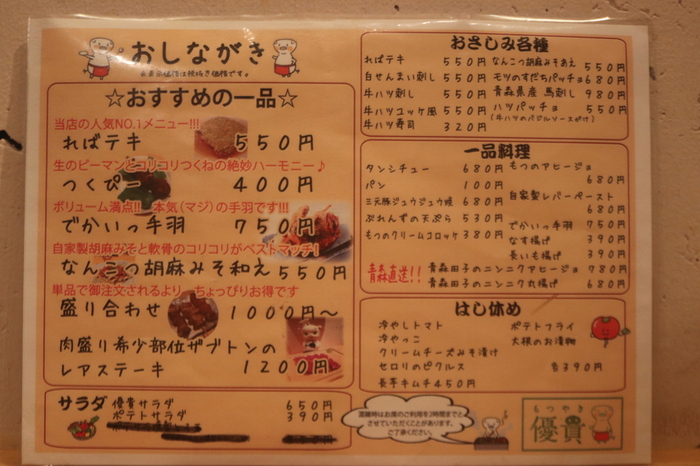 おしながき
※表示価格は税抜き価格です。
☆おすすめの一品☆
当店の人気NO.1メニュー!!!
ればテキ 550円
生のピーマンとコリコリつくねの絶妙ハーモニー♪
つくぴー 400円
ボリューム満点!! 本気(マジ)の手羽です!!!
でかいっ手羽 750円
自家製胡麻みそと軟骨のコリコリがベストマッチ!
なんこつ胡麻みそ和え 550円
単品で御注文されるより ちょっぴりお得です
盛り合わせ 1000円~
肉盛り希少部位ザブトンの
レアステーキ 1200円
サラダ
優貴サラダ 650円
ポテトサラダ 390円
おさしみ各種
ればテキ 550円
白せんまい刺し 550円
牛ハツ刺し 550円
牛ハツユッケ風 550円
牛ハツ寿司 320円
なんこつ胡麻みそあえ 550円
モツのすだちパッチョ 680円
青森県産 馬刺し 980円
ハツパッチョ 550円
(牛ハツのバジルソースがけ)
一品料理
タンシチュー 680円
パン 100円
三元豚ジュウジュウ焼 680円
ぷれんずの天ぷら 530円
もつのクリームコロッケ 380円
もつのアヒージョ
680円
自家製レバーペースト
680円
でかいっ手羽 750円
なす揚げ 390円
長いも揚げ 390円
青森直送!!
青森田子のニンニクアヒージョ 780円
青森田子のニンニク丸揚げ 680円
はし休め
冷やしトマト
冷やっこ
クリームチーズみそ漬け
セロリのピクルス
長芋キムチ450円
ポテトフライ
大根のお漬物
各390円
混雑時はお席のご利用を2時間までと
させていただくことがあります。
ご了承ください。
もつやき
優貴